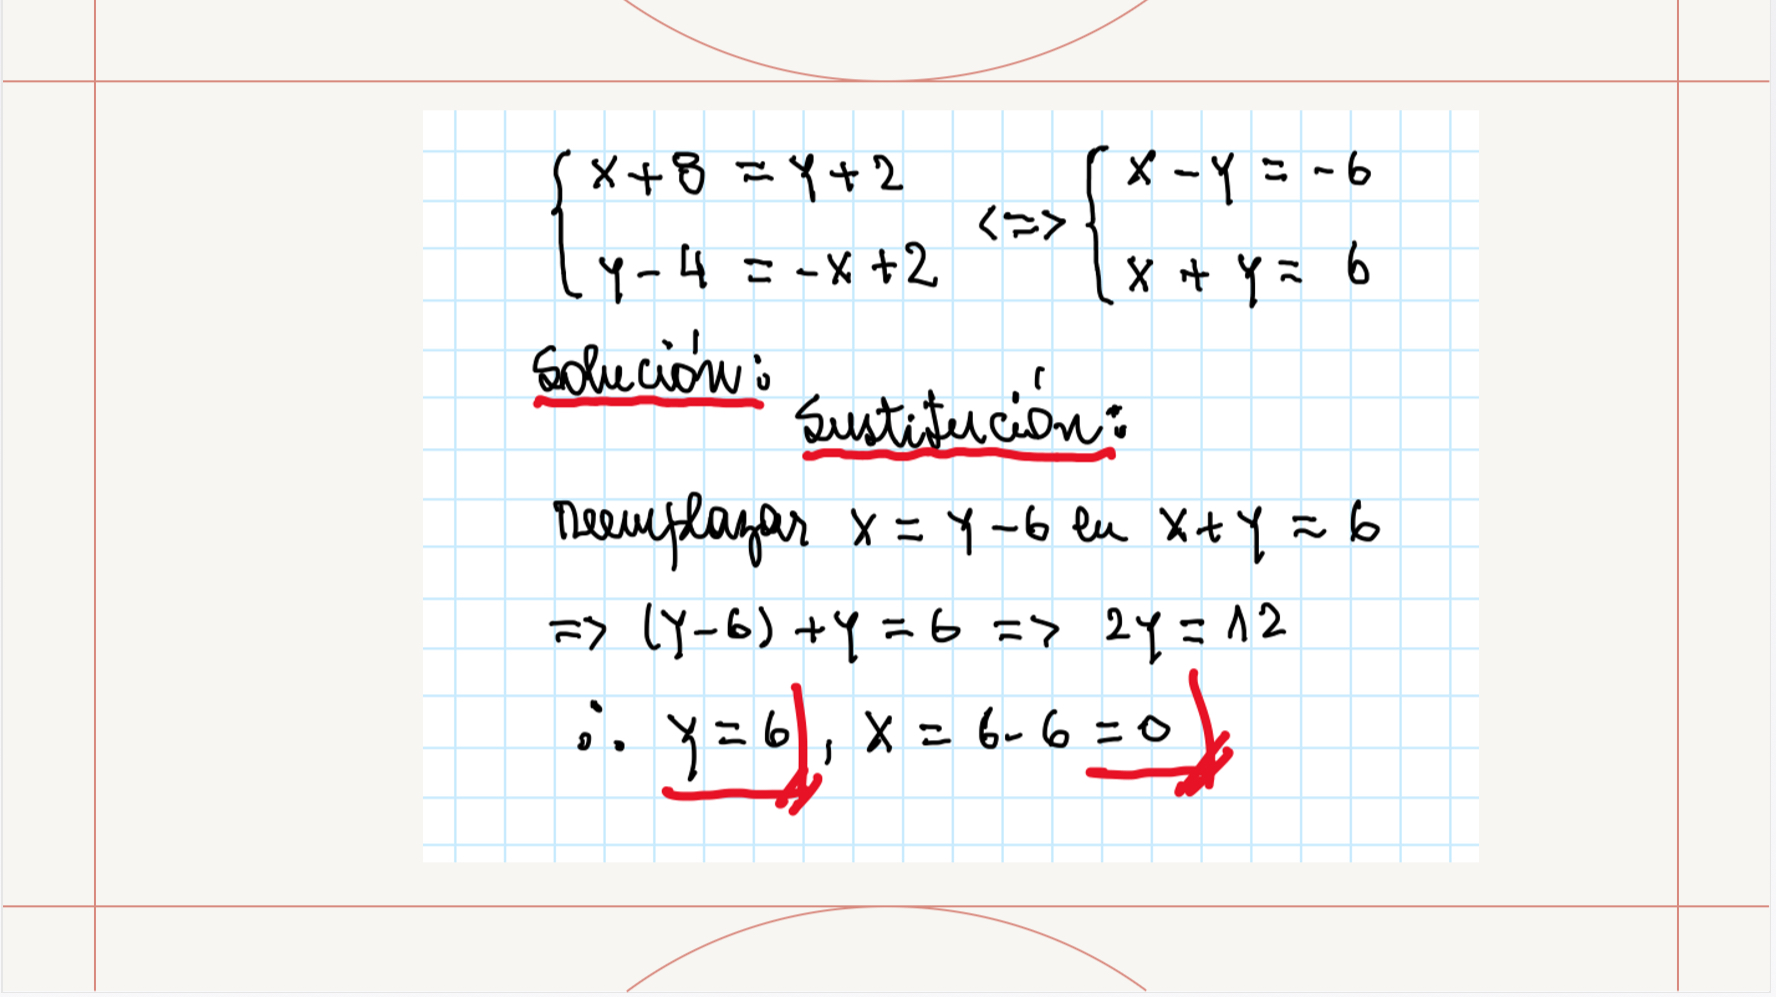 { x + 8 = y + 2 <=> { x - y = -6
{ y - 4 = -x + 2 { x + y = 6
Solución:
Sustitución:
Reemplazar x = y - 6 en x + y = 6
=> (y - 6) + y = 6 => 2y = 12
∴ y = 6, x = 6 - 6 = 0